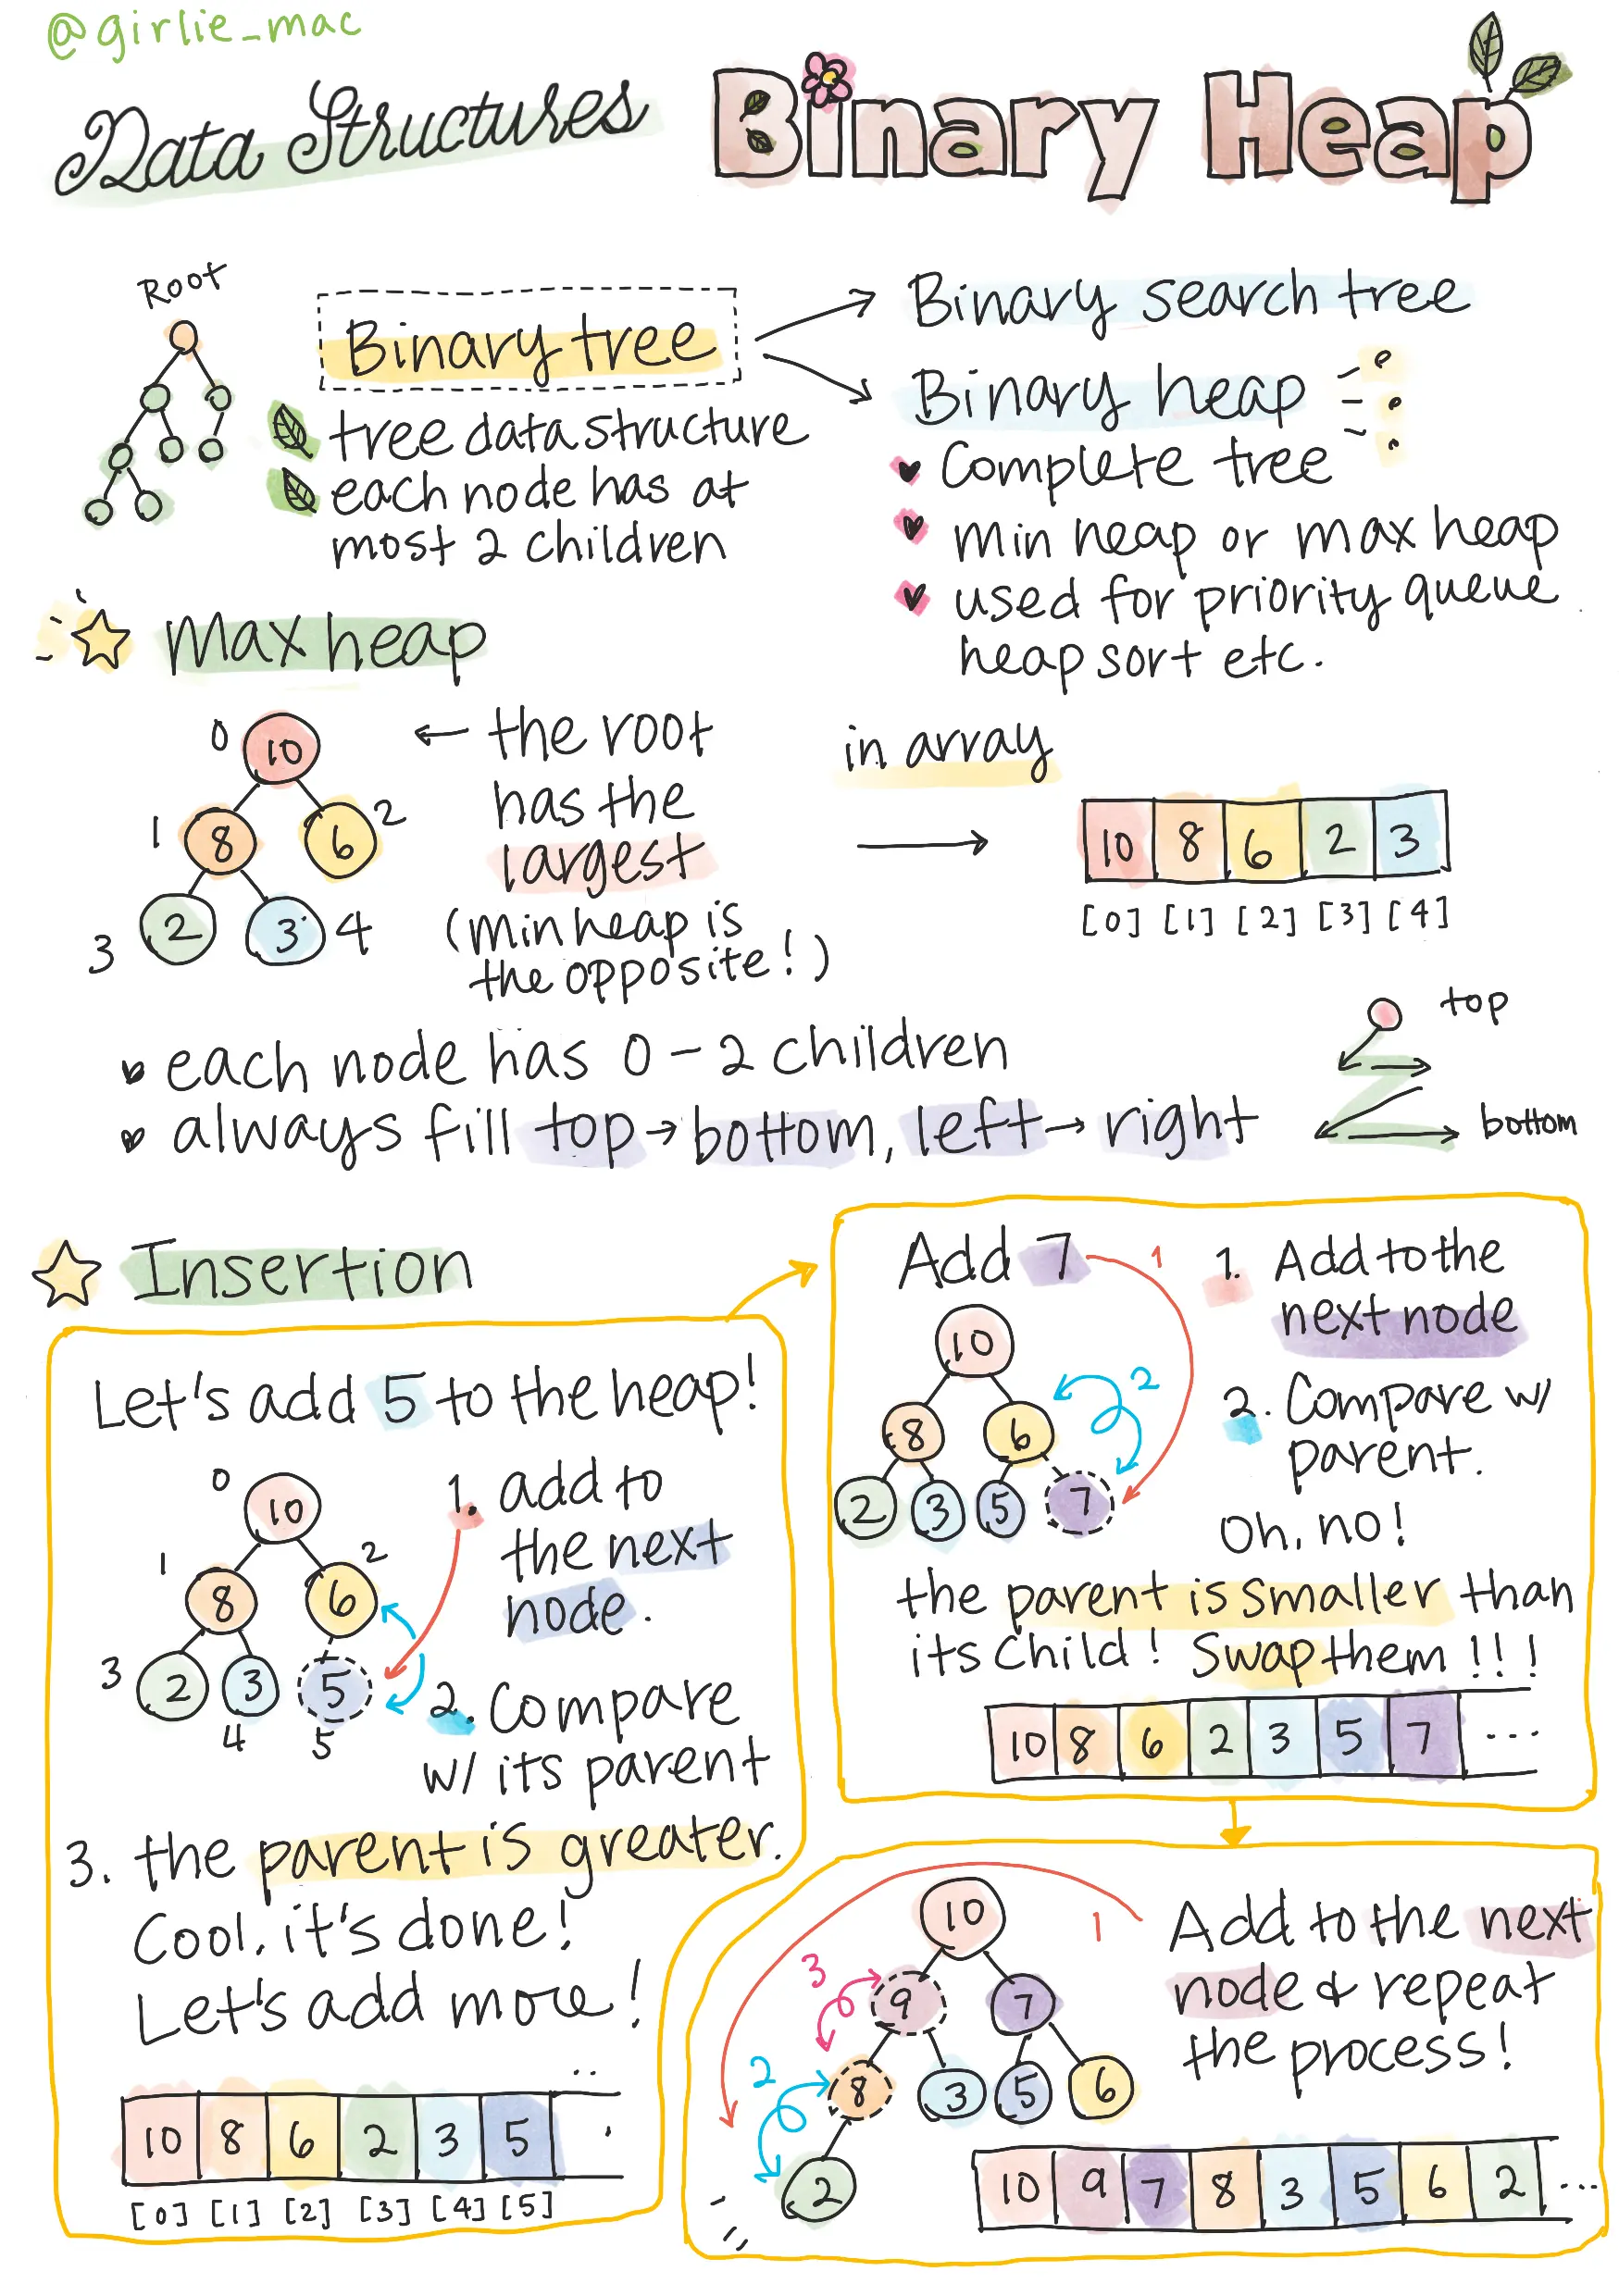 @girlie_mac
Data Structures
Binary Heap
Root
Binary tree
tree data structure
each node has at
most 2 children
Binary search tree
Binary heap
Complete tree
min heap or max heap
used for priority queue
heap sort etc.
Max heap
0 10
1 8 6 2
3 2 3 4
← the root
has the
largest
(Min heap is
the opposite!)
in array
10 8 6 2 3
[0] [1] [2] [3] [4]
each node has 0-2 children
always fill top → bottom, left → right
top
bottom
Insertion
Let's add 5 to the heap!
0 10
1 8 6 2
3 2 3 5
4 5
1. add to
the next
node.
2. Compare
w/ its parent
3. the parent is greater.
Cool, it's done!
Let's add more!
10 8 6 2 3 5
[0] [1] [2] [3] [4] [5]
Add 7
1
10
2
8 6
2 3 5 7
1. Add to the
next node
2. Compare w/
parent.
Oh, no!
the parent is smaller than
its child! Swap them!!!
10 8 6 2 3 5 7 ...
10
1
3
9 7
2
8 3 5 6
2
Add to the next
node & repeat
the process!
10 9 7 8 3 5 6 2 ...